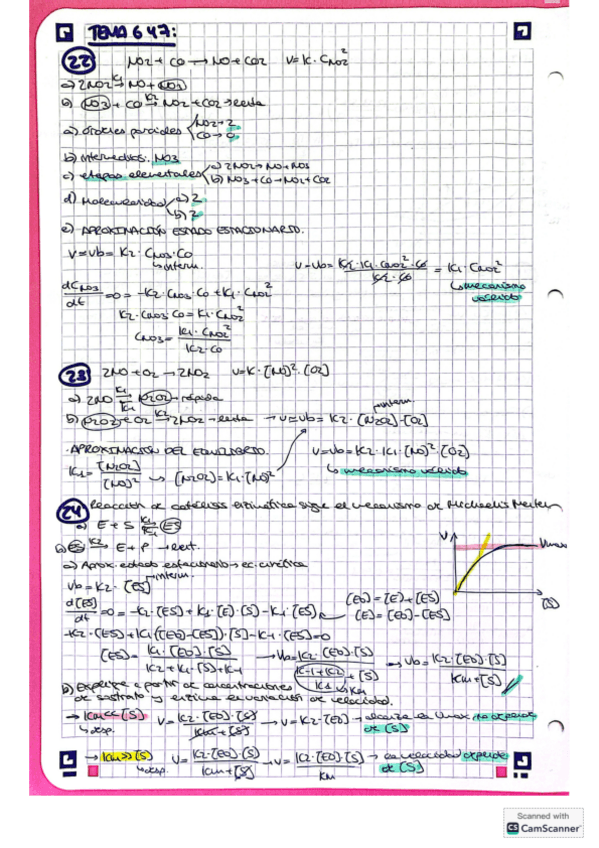 TEMA 6 Y 7:
22 NO2 + CO → NO + CO2 V = K · C_NO2^2
a) 2NO2 →(K1) NO + NO3
b) NO3 + CO →(K2) NO2 + CO2 → lenta
a) órdenes parciales NO2 → 2
CO → 0
b) intermedios: NO3
c) etapas elementales a) 2NO2 → NO + NO3
b) NO3 + CO → NO2 + CO2
d) Molecularidad a) 2
b) 2
e) APROXIMACIÓN ESTADO ESTACIONARIO.
V = Vb = K2 · C_NO3 · CO
↳ interm.
V = Vb = K2 · K1 · C_NO2^2 · CO / K2 · CO = K1 · C_NO2^2
↳ mecanismo válido
dC_NO3/dt = 0 = -K2 · C_NO3 · CO + K1 · C_NO2^2
K2 · C_NO3 · CO = K1 · C_NO2^2
C_NO3 = K1 · C_NO2^2 / K2 · CO
23 2NO + O2 → 2NO2 V = K · [NO]^2 · [O2]
a) 2NO ⇌(K1, K-1) N2O2 → rápida
b) N2O2 + O2 →(K2) 2NO2 → lenta → V = Vb = K2 · [N2O2] · [O2]
interm.
· APROXIMACIÓN DEL EQUILIBRIO.
V = Vb = K2 · K1 · [NO]^2 · [O2]
↳ mecanismo válido
K1 = [N2O2] / [NO]^2 → [N2O2] = K1 · [NO]^2
24 Reacción de catálisis enzimática sigue el mecanismo de Michaelis Menten
a) E + S ⇌(K1, K-1) ES
b) ES →(K2) E + P → lent.
V Vmax [S]
a) Aprox. estado estacionario → ec. cinética
Vb = K2 · [ES] interm.
d[ES]/dt = 0 = -K2 · [ES] + K1 · [E] · [S] - K-1 · [ES]
[E0] = [E] + [ES]
[E] = [E0] - [ES]
-K2 · [ES] + K1 ([E0] - [ES]) · [S] - K-1 · [ES] = 0
[ES] = K1 · [E0] · [S] / K2 + K1 · [S] + K-1 → Vb = K2 · [E0] · [S] / (K-1 + K2 / K1) + [S] → Vb = K2 · [E0] · [S] / Km + [S]
↳ Km
b) Explique a partir de concentraciones
de sustrato y enzima en variación de velocidad.
→ Km << [S] V = K2 · [E0] · [S] / Km + [S] → V = K2 · [E0] → alcanza la Vmax no depende
↳ desp. de [S]
→ Km >> [S] V = K2 · [E0] · [S] / Km + [S] → V = K2 · [E0] · [S] / Km → la velocidad depende
↳ desp. de [S]
Scanned with
CS CamScanner